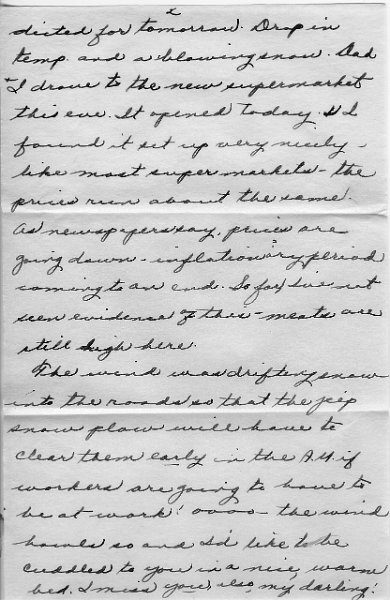 dicted for tomorrow. Drop in
temp. and a blowing snow. Dad
+ I drove to the new supermarket
this eve. It opened today. & I
found it set up very nicely -
like most super markets - the
prices run about the same.
As newspapers say, prices are
going down - inflationary period
coming to an end. So far, I've not
seen evidence of this - meats are
still high here.
The wind was drifting snow
into the roads so that the jeep
snow plow will have to
clear them early in the A.M. if
workers are going to have to
be at work! oooo - the wind
howls so and I'd like to be
cuddled to you in a nice, warm
bed. I miss you, also, my darling!